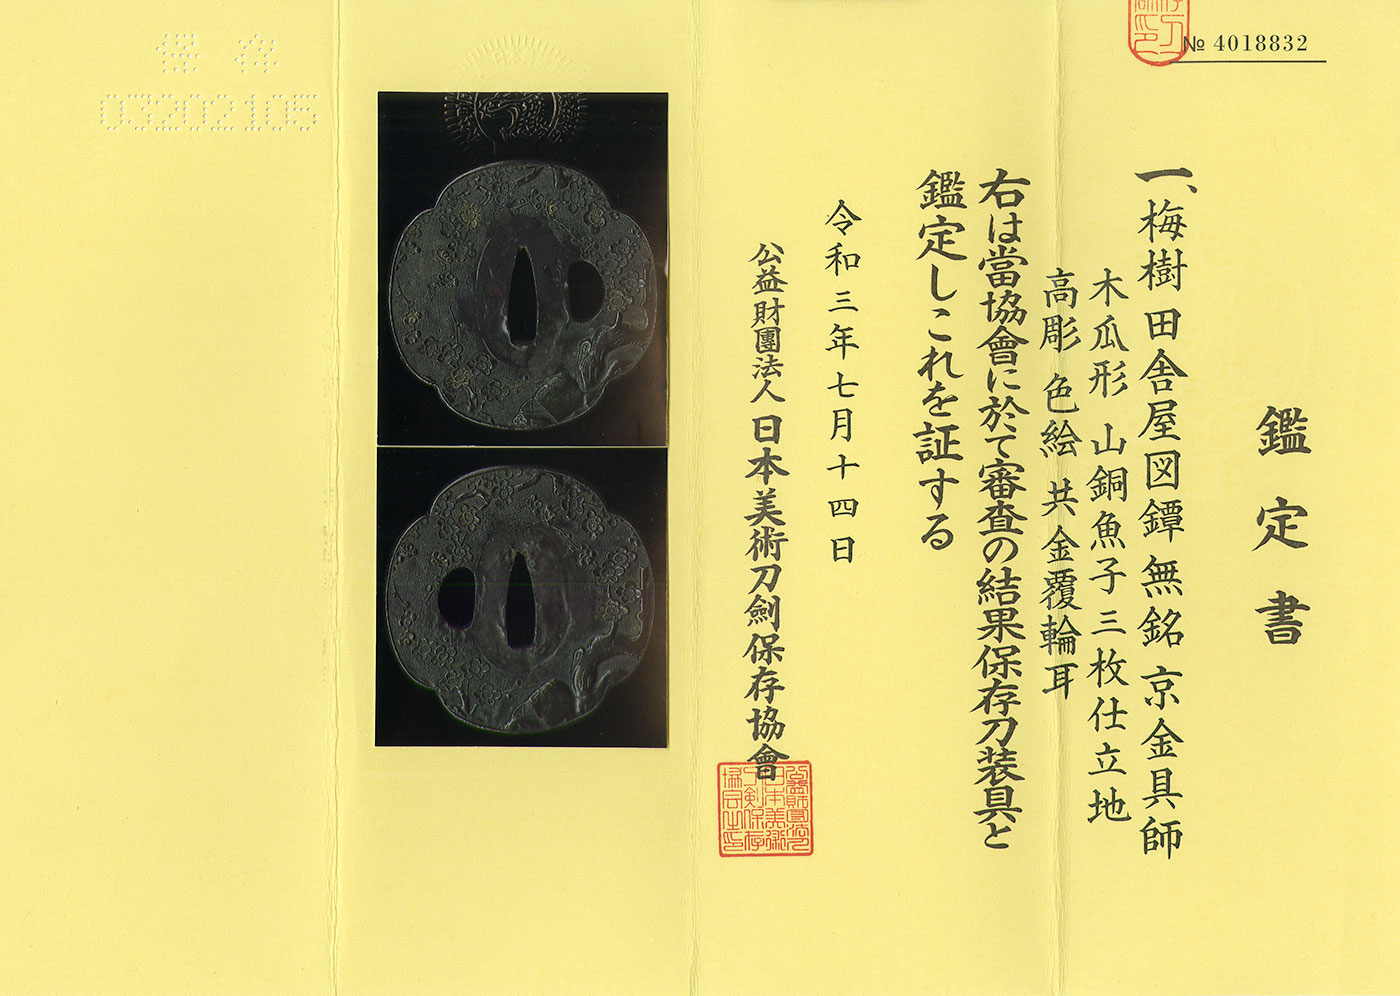 № 4018832
鑑定書
一、梅樹田舎屋図鐔 無銘 京金具師
木瓜形 山銅魚子三枚仕立地
高彫 色絵 共金覆輪耳
右は當協會に於て審査の結果保存刀装具と
鑑定しこれを証する
令和三年七月十四日
公益財團法人 日本美術刀劍保存協會
保存
03202105